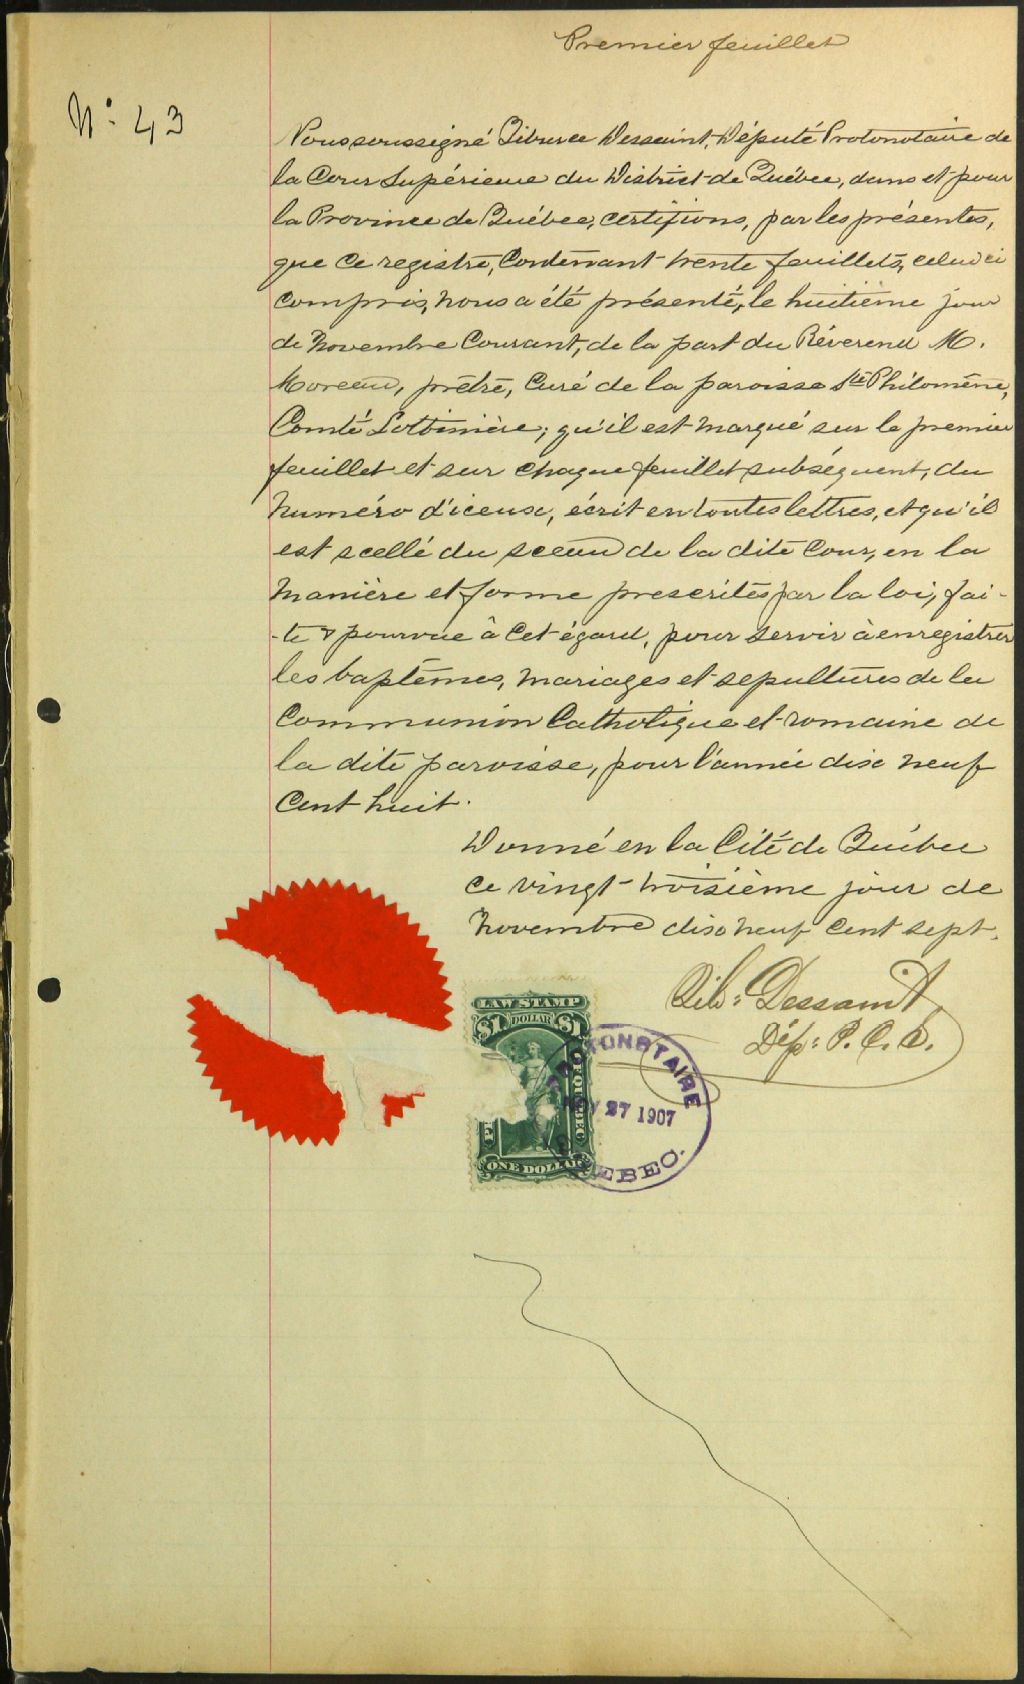 Premier feuillet
No 43
Nous soussigné Tiburce Dessaint, Député Protonotaire de
la Cour Supérieure du District de Québec, dans et pour
la Province de Québec, certifions, par les présentes,
que ce registre, Contenant trente feuillets, celui ci
compris, nous a été présenté, le huitième jour
de Novembre Courant, de la part du Révérend M.
Moreau, prêtre, Curé de la paroisse Ste Philomène,
Comté Lotbinière; qu'il est marqué sur le premier
feuillet et sur chaque feuillet subséquent, du
numéro d'iceux, écrit en toutes lettres, et qu'il
est scellé du sceau de la dite Cour, en la
manière et forme prescrites par la loi, fai-
-te & pourvue à cet égard, pour servir à enregistrer
les baptêmes, mariages et sépultures de la
Communion Catholique et romaine de
la dite paroisse, pour l'année dix neuf
Cent huit.
Donné en la Cité de Québec
ce vingt-troisième jour de
Novembre dix neuf cent sept.
Tib: Dessaint
Dép: P. C. S.
LAW STAMP
$1 DOLLAR $1
OF QUEBEC
ONE DOLLAR
PROTONOTAIRE
NOV 27 1907
QUEBEC.